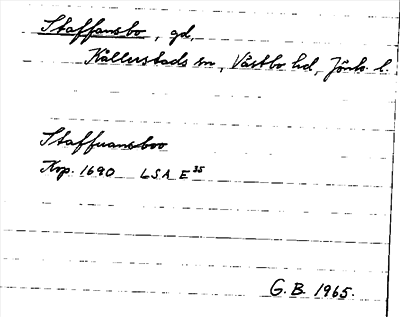 Staffansbo, gd,
Källerstads sn, Västbo hd, Jönk. l.
Staffuansboo
Krp. 1690 LSA E 35
G. B. 1965.